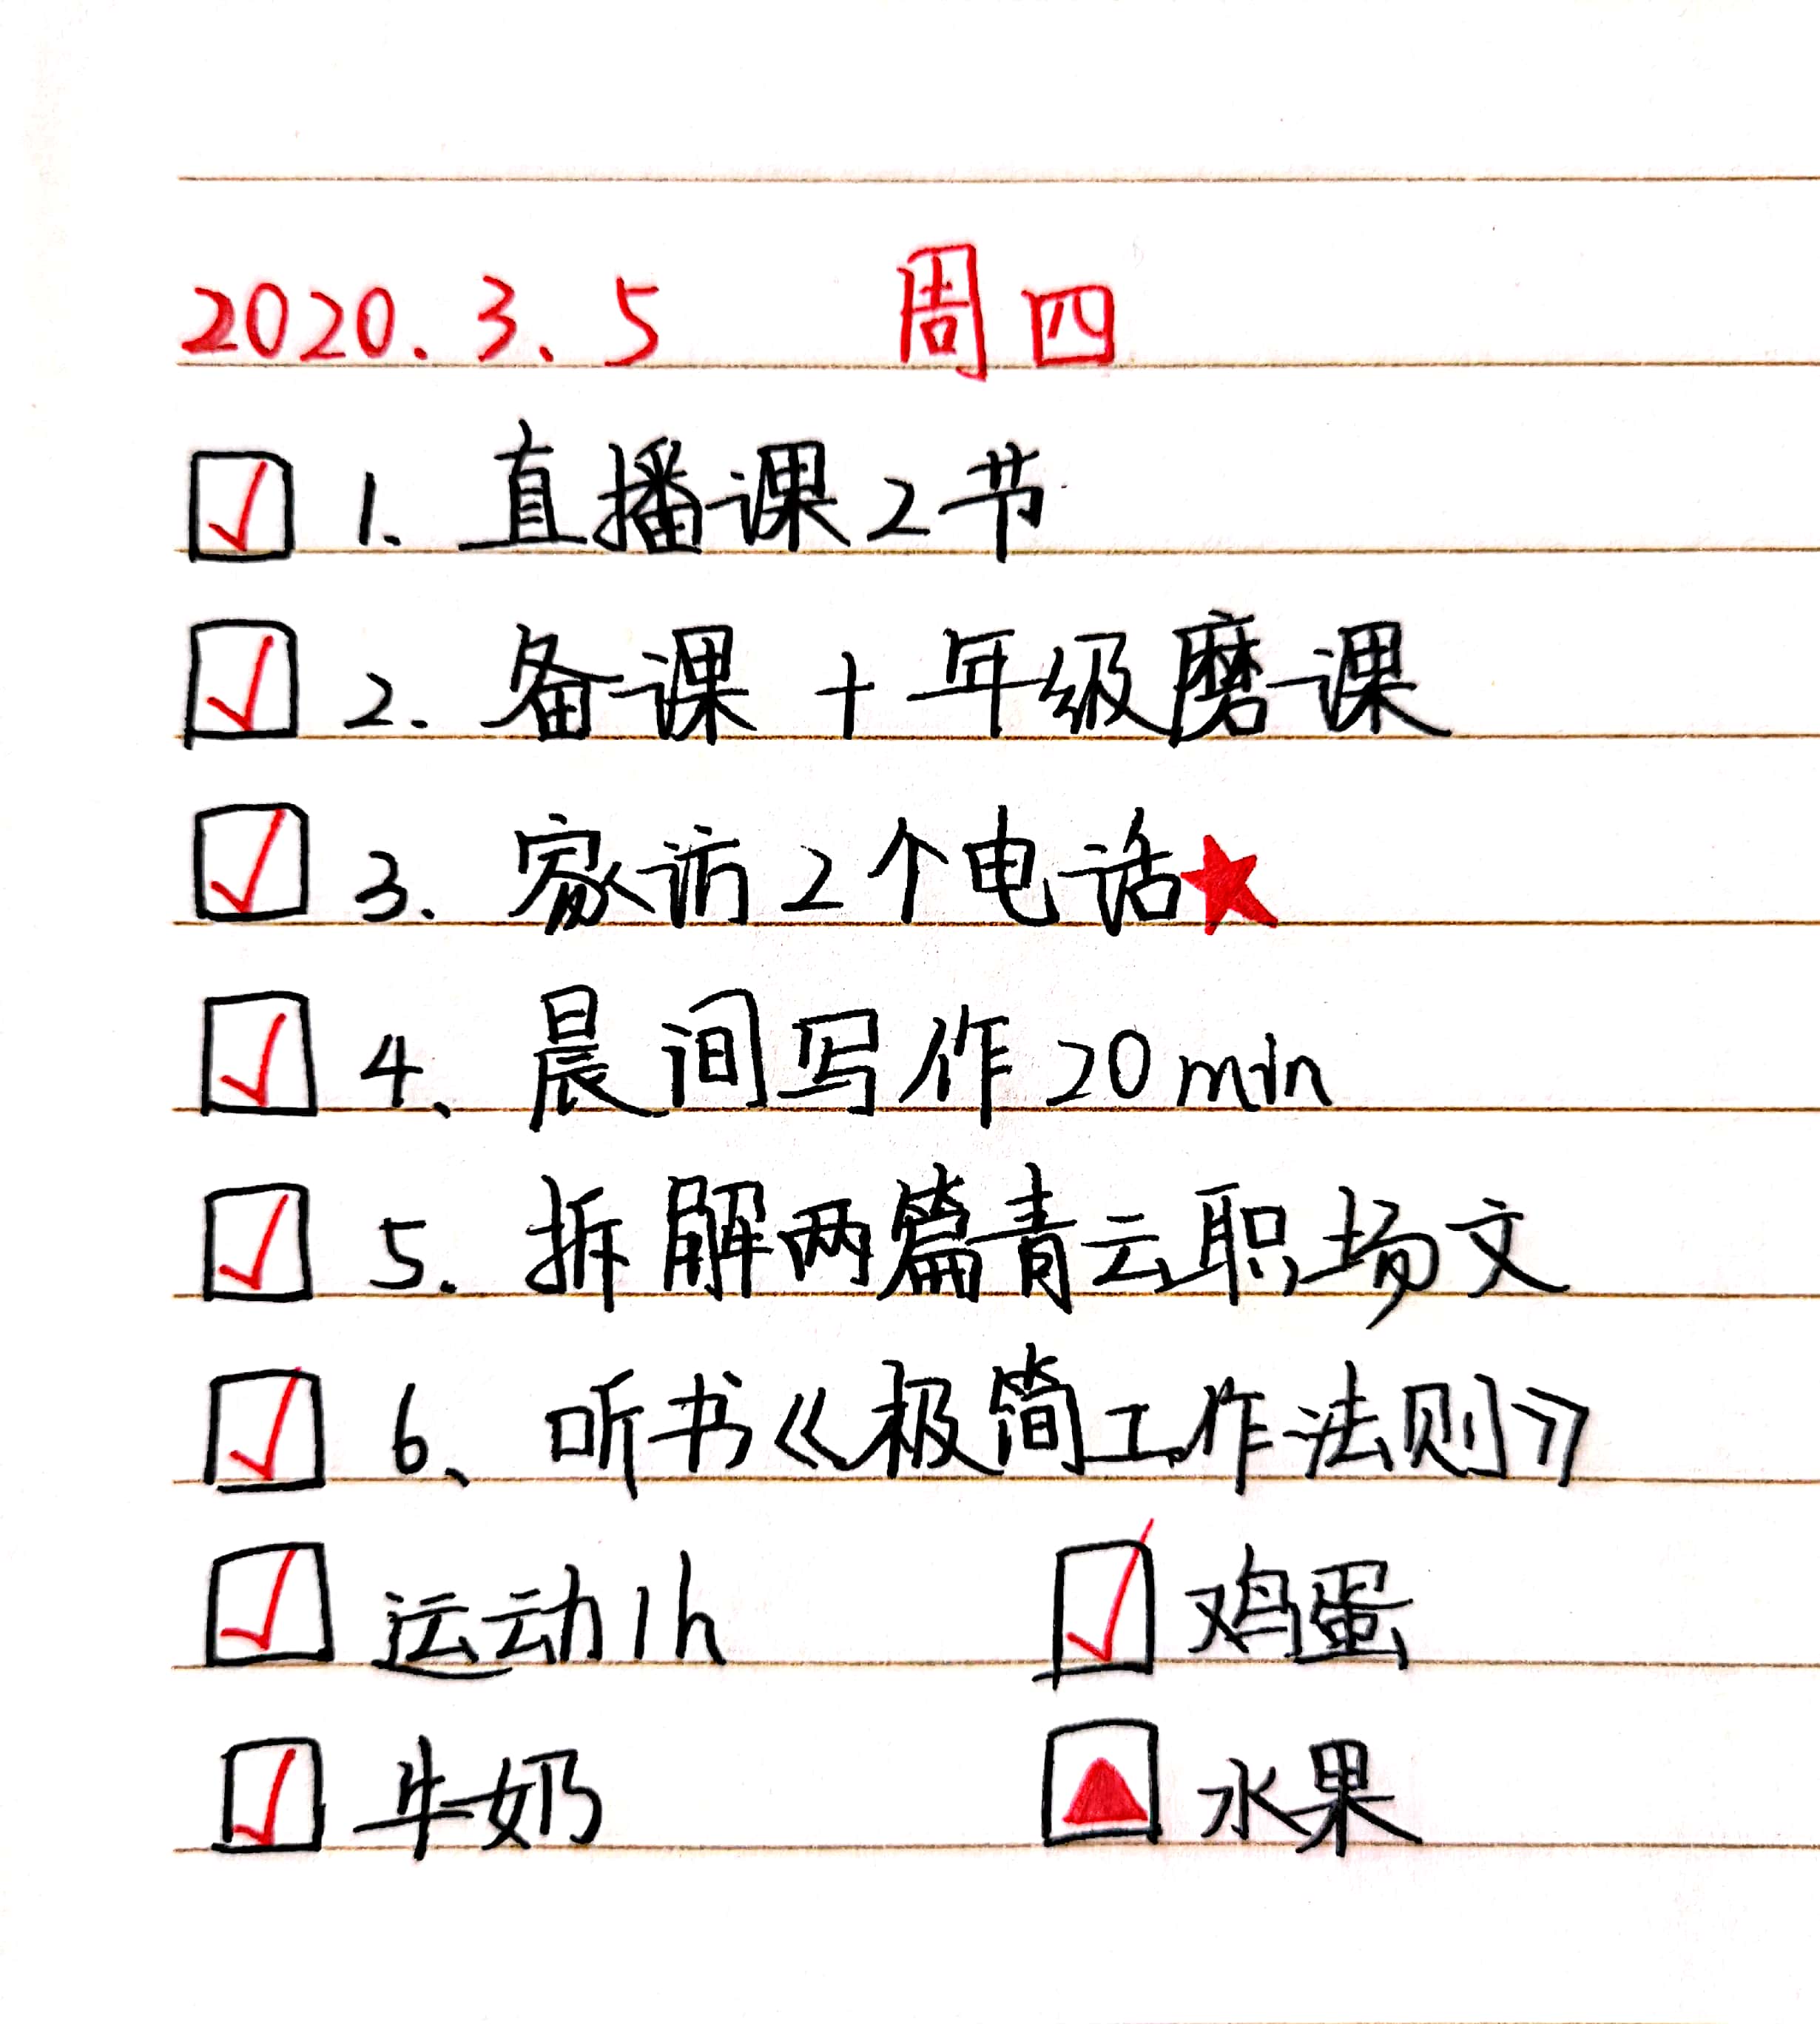 2020.3.5 周四
☑ 1. 直播课2节
☑ 2. 备课+年级磨课
☑ 3. 家访2个电话★
☑ 4、晨间写作20min
☑ 5. 拆解两篇青云职场文
☑ 6、听书《极简工作法则》
☑ 运动1h ☑ 鸡蛋
☑ 牛奶 ▲ 水果